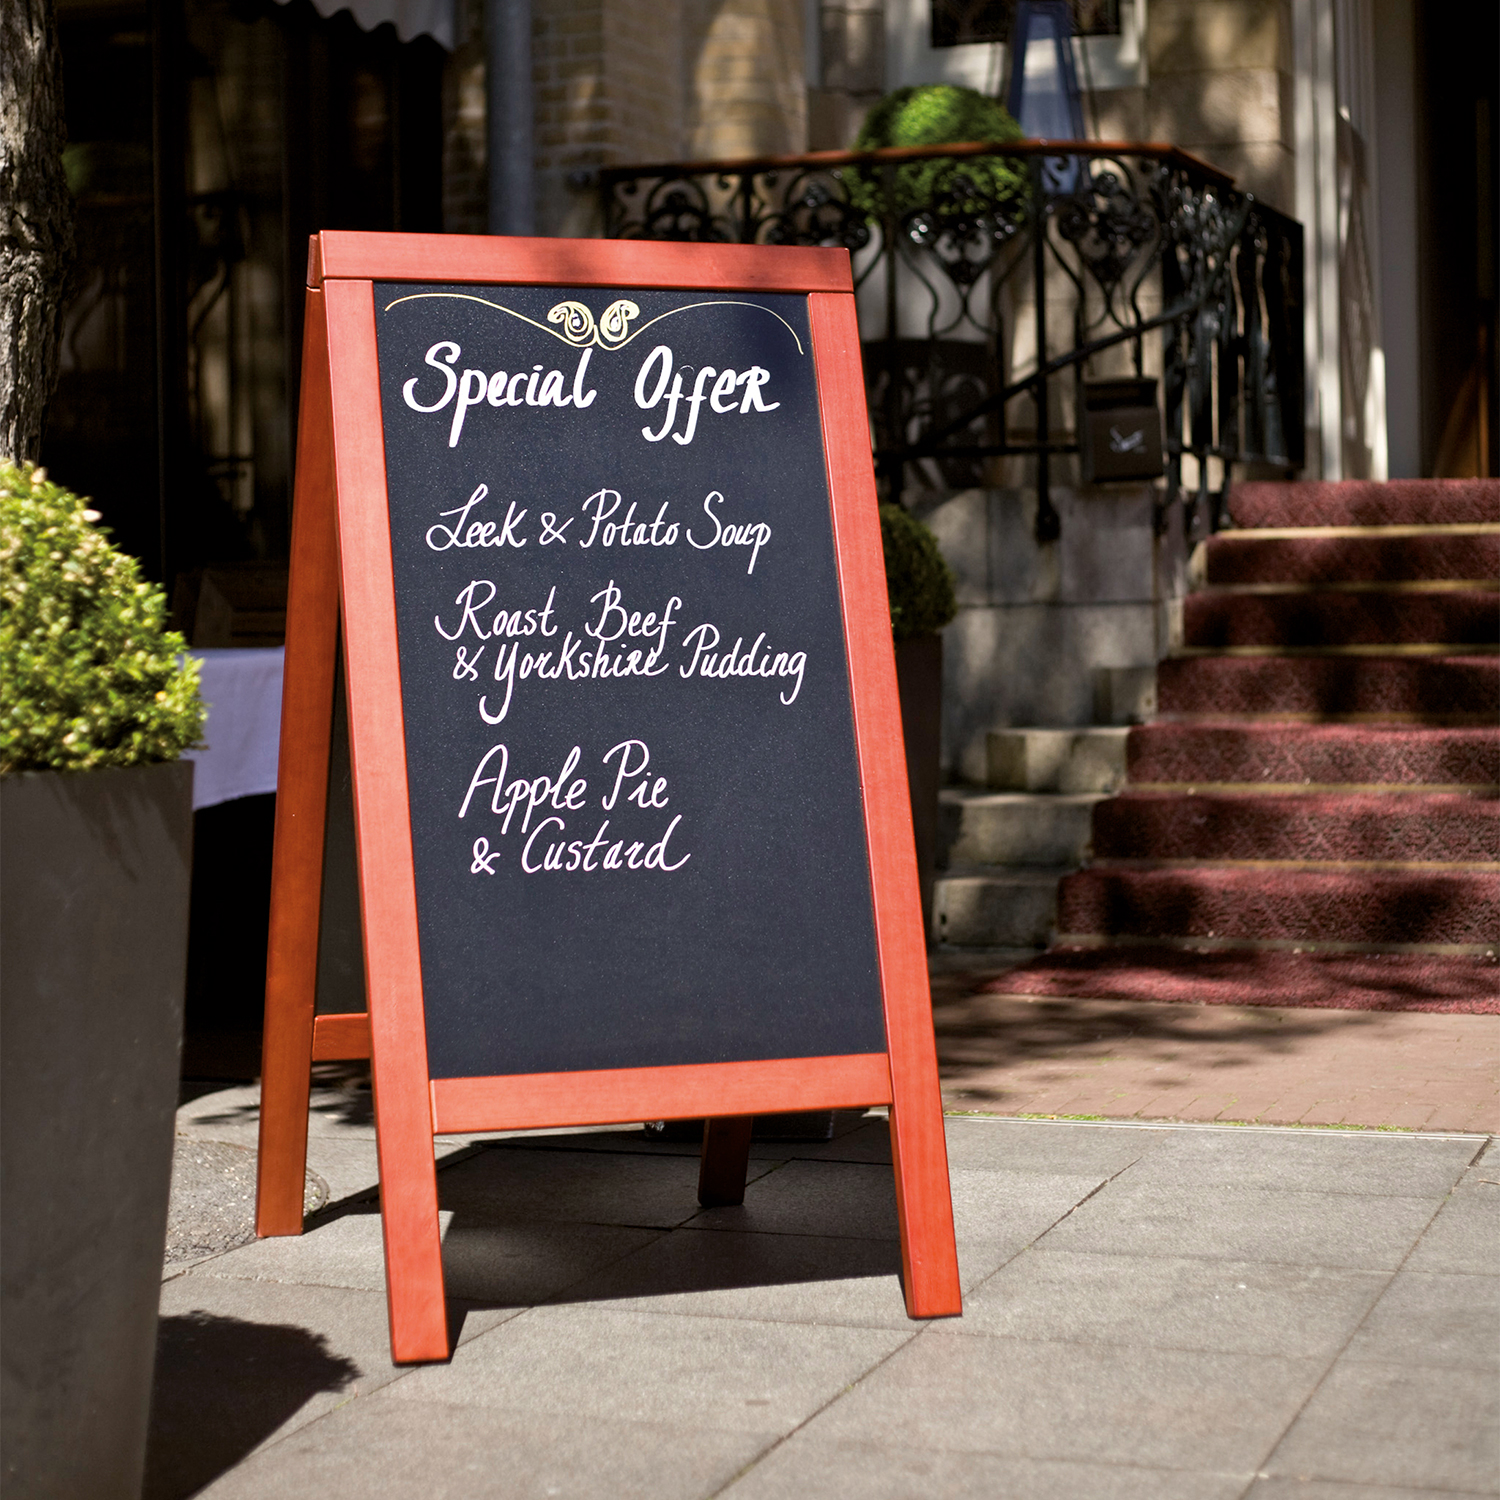 Special Offer
Leek & Potato Soup
Roast Beef
& Yorkshire Pudding
Apple Pie
& Custard